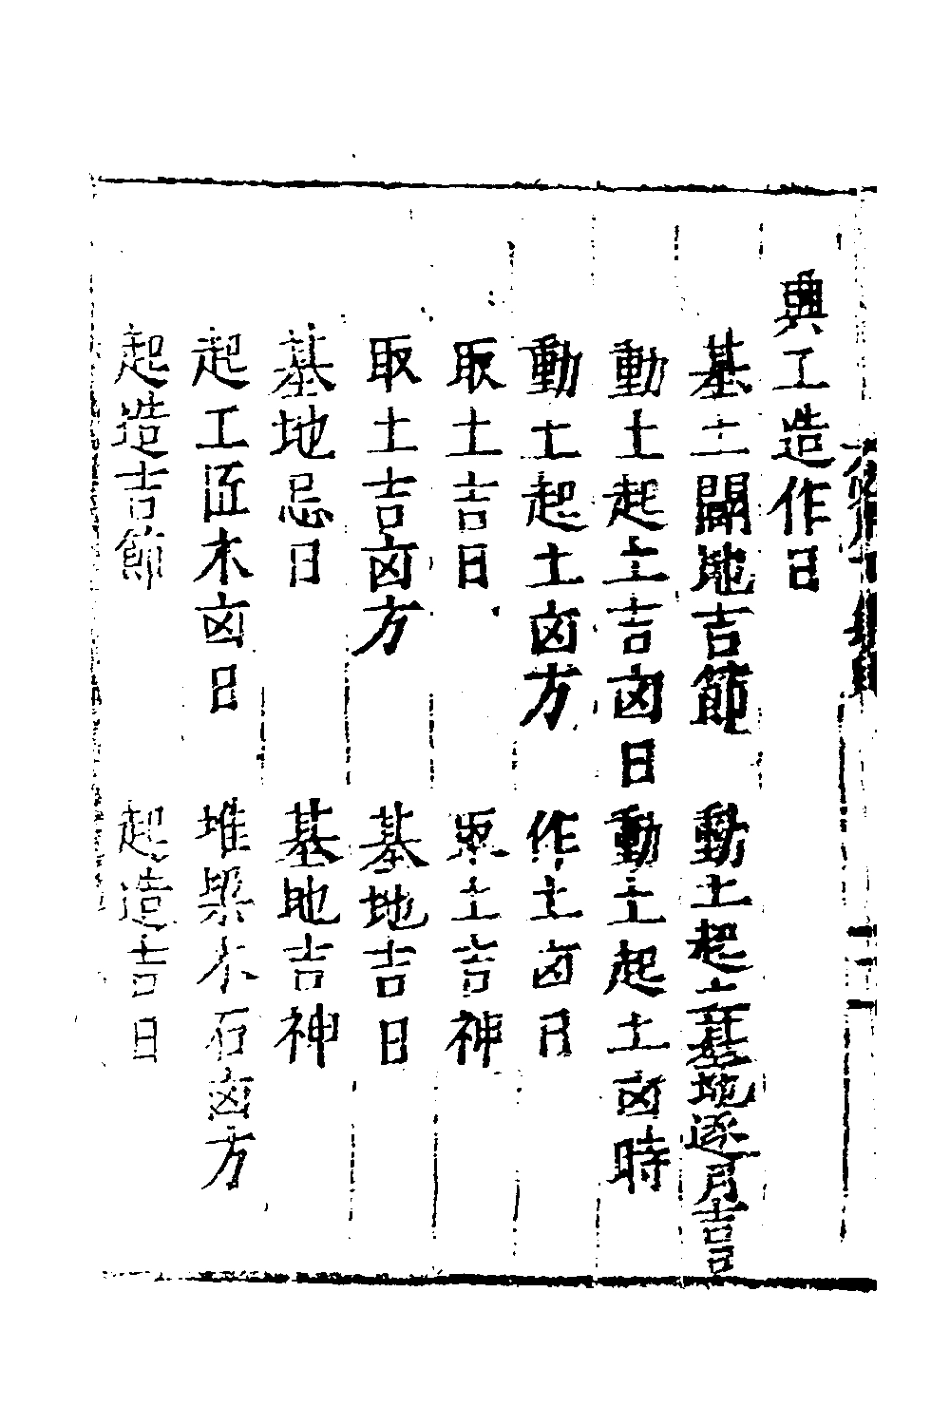 興工造作日
基土開地吉節　動土起土基地逐月吉日
動土起土吉凶日　動土起土凶時
動土起土凶方　作土凶日
取土吉日　取土吉神
取土吉凶方　基地吉日
基地忌日　基地吉神
起工匠木凶日　堆梁木石凶方
起造吉節　起造吉日